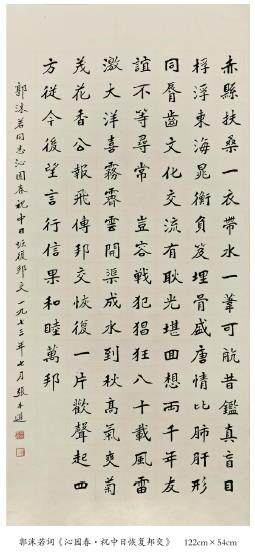 赤縣扶桑一衣帶水一葦可航昔鑑真盲目
桴浮東海晁衡負笈埋骨盛唐情比肺肝形
同脣齒文化交流有耿光堪回想兩千年友
誼不等尋常 豈容戰犯猖狂八十載風雷
激大洋喜霧霽雲開渠成水到秋高氣爽菊
茂花香公報飛傳邦交恢復一片歡聲起四
方從今後望言行信果和睦萬邦
郭沫若同志沁園春祝中日恢復邦交一九七三年七月張
郭沫若词《沁园春·祝中日恢复邦交》 122cm×54cm